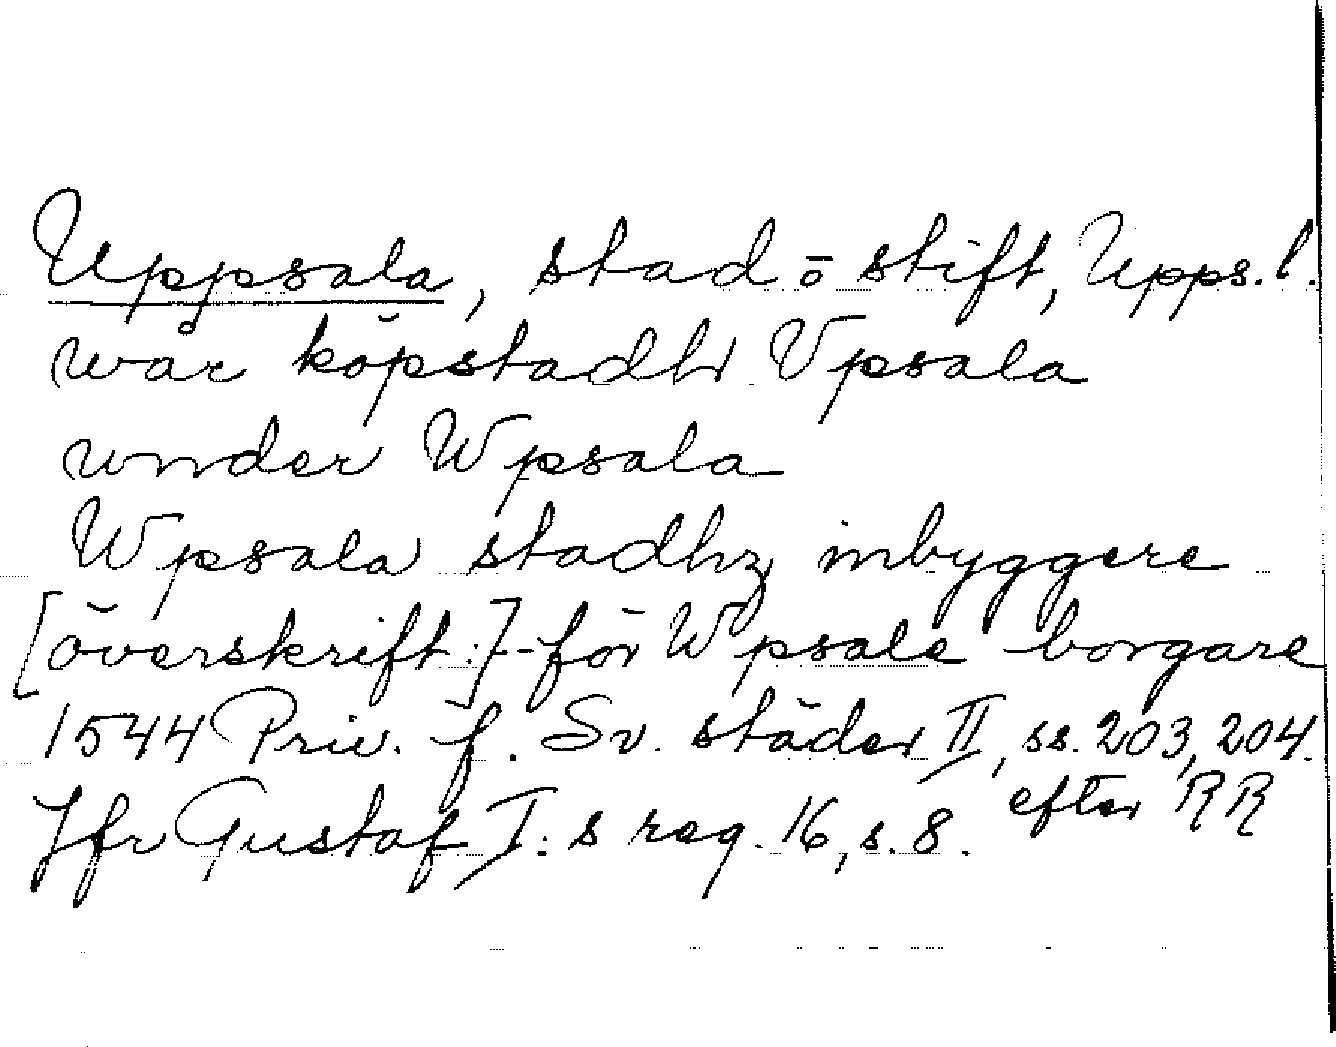 Uppsala, stad o stift, Upps. l.
wår köpstadh Vpsala
wnder Wpsala
Wpsala stadhz inbyggere
[överskrift:] för Wpsale borgare
1544 Priv. f. Sv. städer II, ss. 203, 204.
efter RR
Jfr Gustaf I:s reg. 16, s. 8.